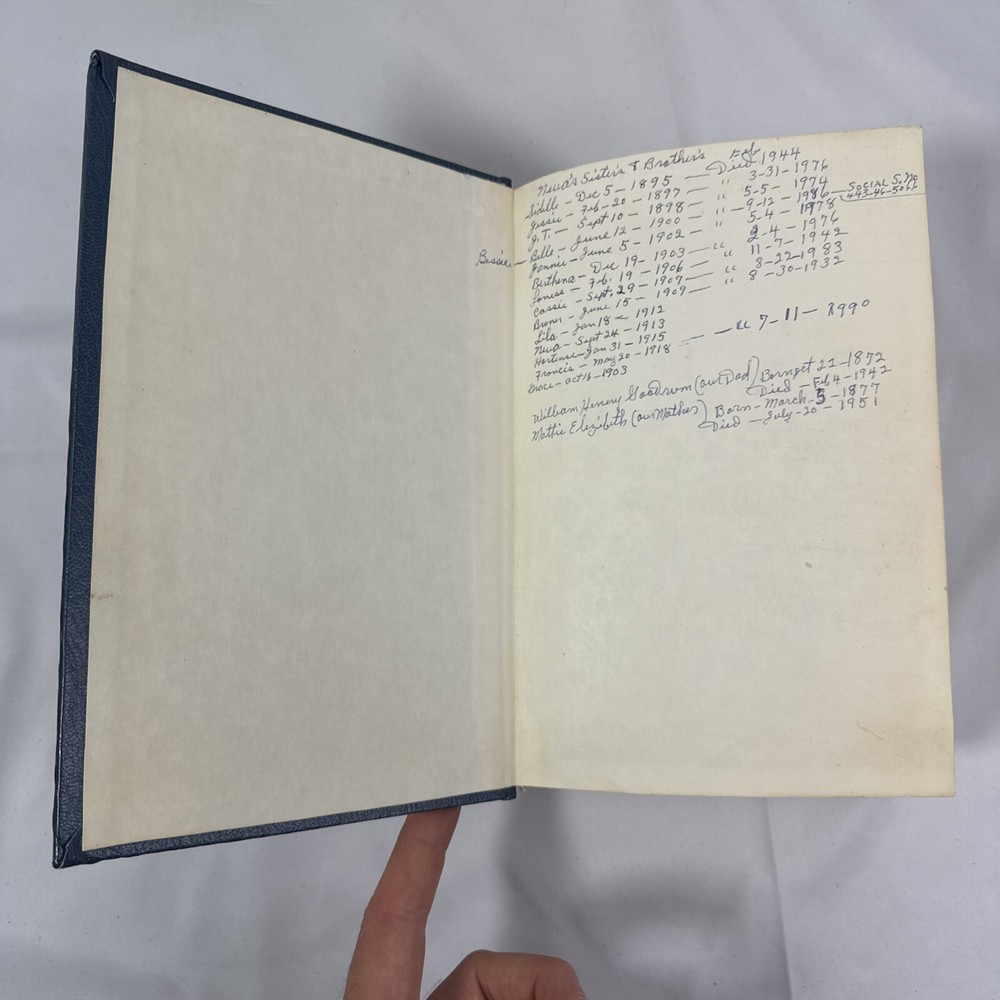 Neva's Sister's & Brother's Feb
Sidelle - Dec 5 - 1895 — Died 1944
Jessie - Feb-20 - 1897 — " 3-31-1976
J.T. - Sept 10 - 1898 — " 5-5-1974
Bessie - Belle - June 12 - 1900 — " - 9-12-1986 - Social S. No
Fannie - June 5 - 1902 — " 5-4-1978
Berthena - Dec 19 - 1903 — " 2-4-1976
Loness - Feb. 19 - 1906 — " 11-7-1942
Cossie - Sept. 29 - 1907 — " 8-22-1983
Broner - June 15 - 1909 — " 8-30-1932
Lila - Jan 18 - 1912
Neva - Sept 24 - 1913
Hortense - Jan 31 - 1915
Francis - May 20 - 1918 — " 7-11-1990
Grace - Oct 16 - 1903
William Henry Goodrum (our Dad) Born Oct 22-1872
Died - Feb 4 - 1942
Mattie Elizibeth (our Mother) Born - March - 5 - 1877
Died - July - 20 - 1951